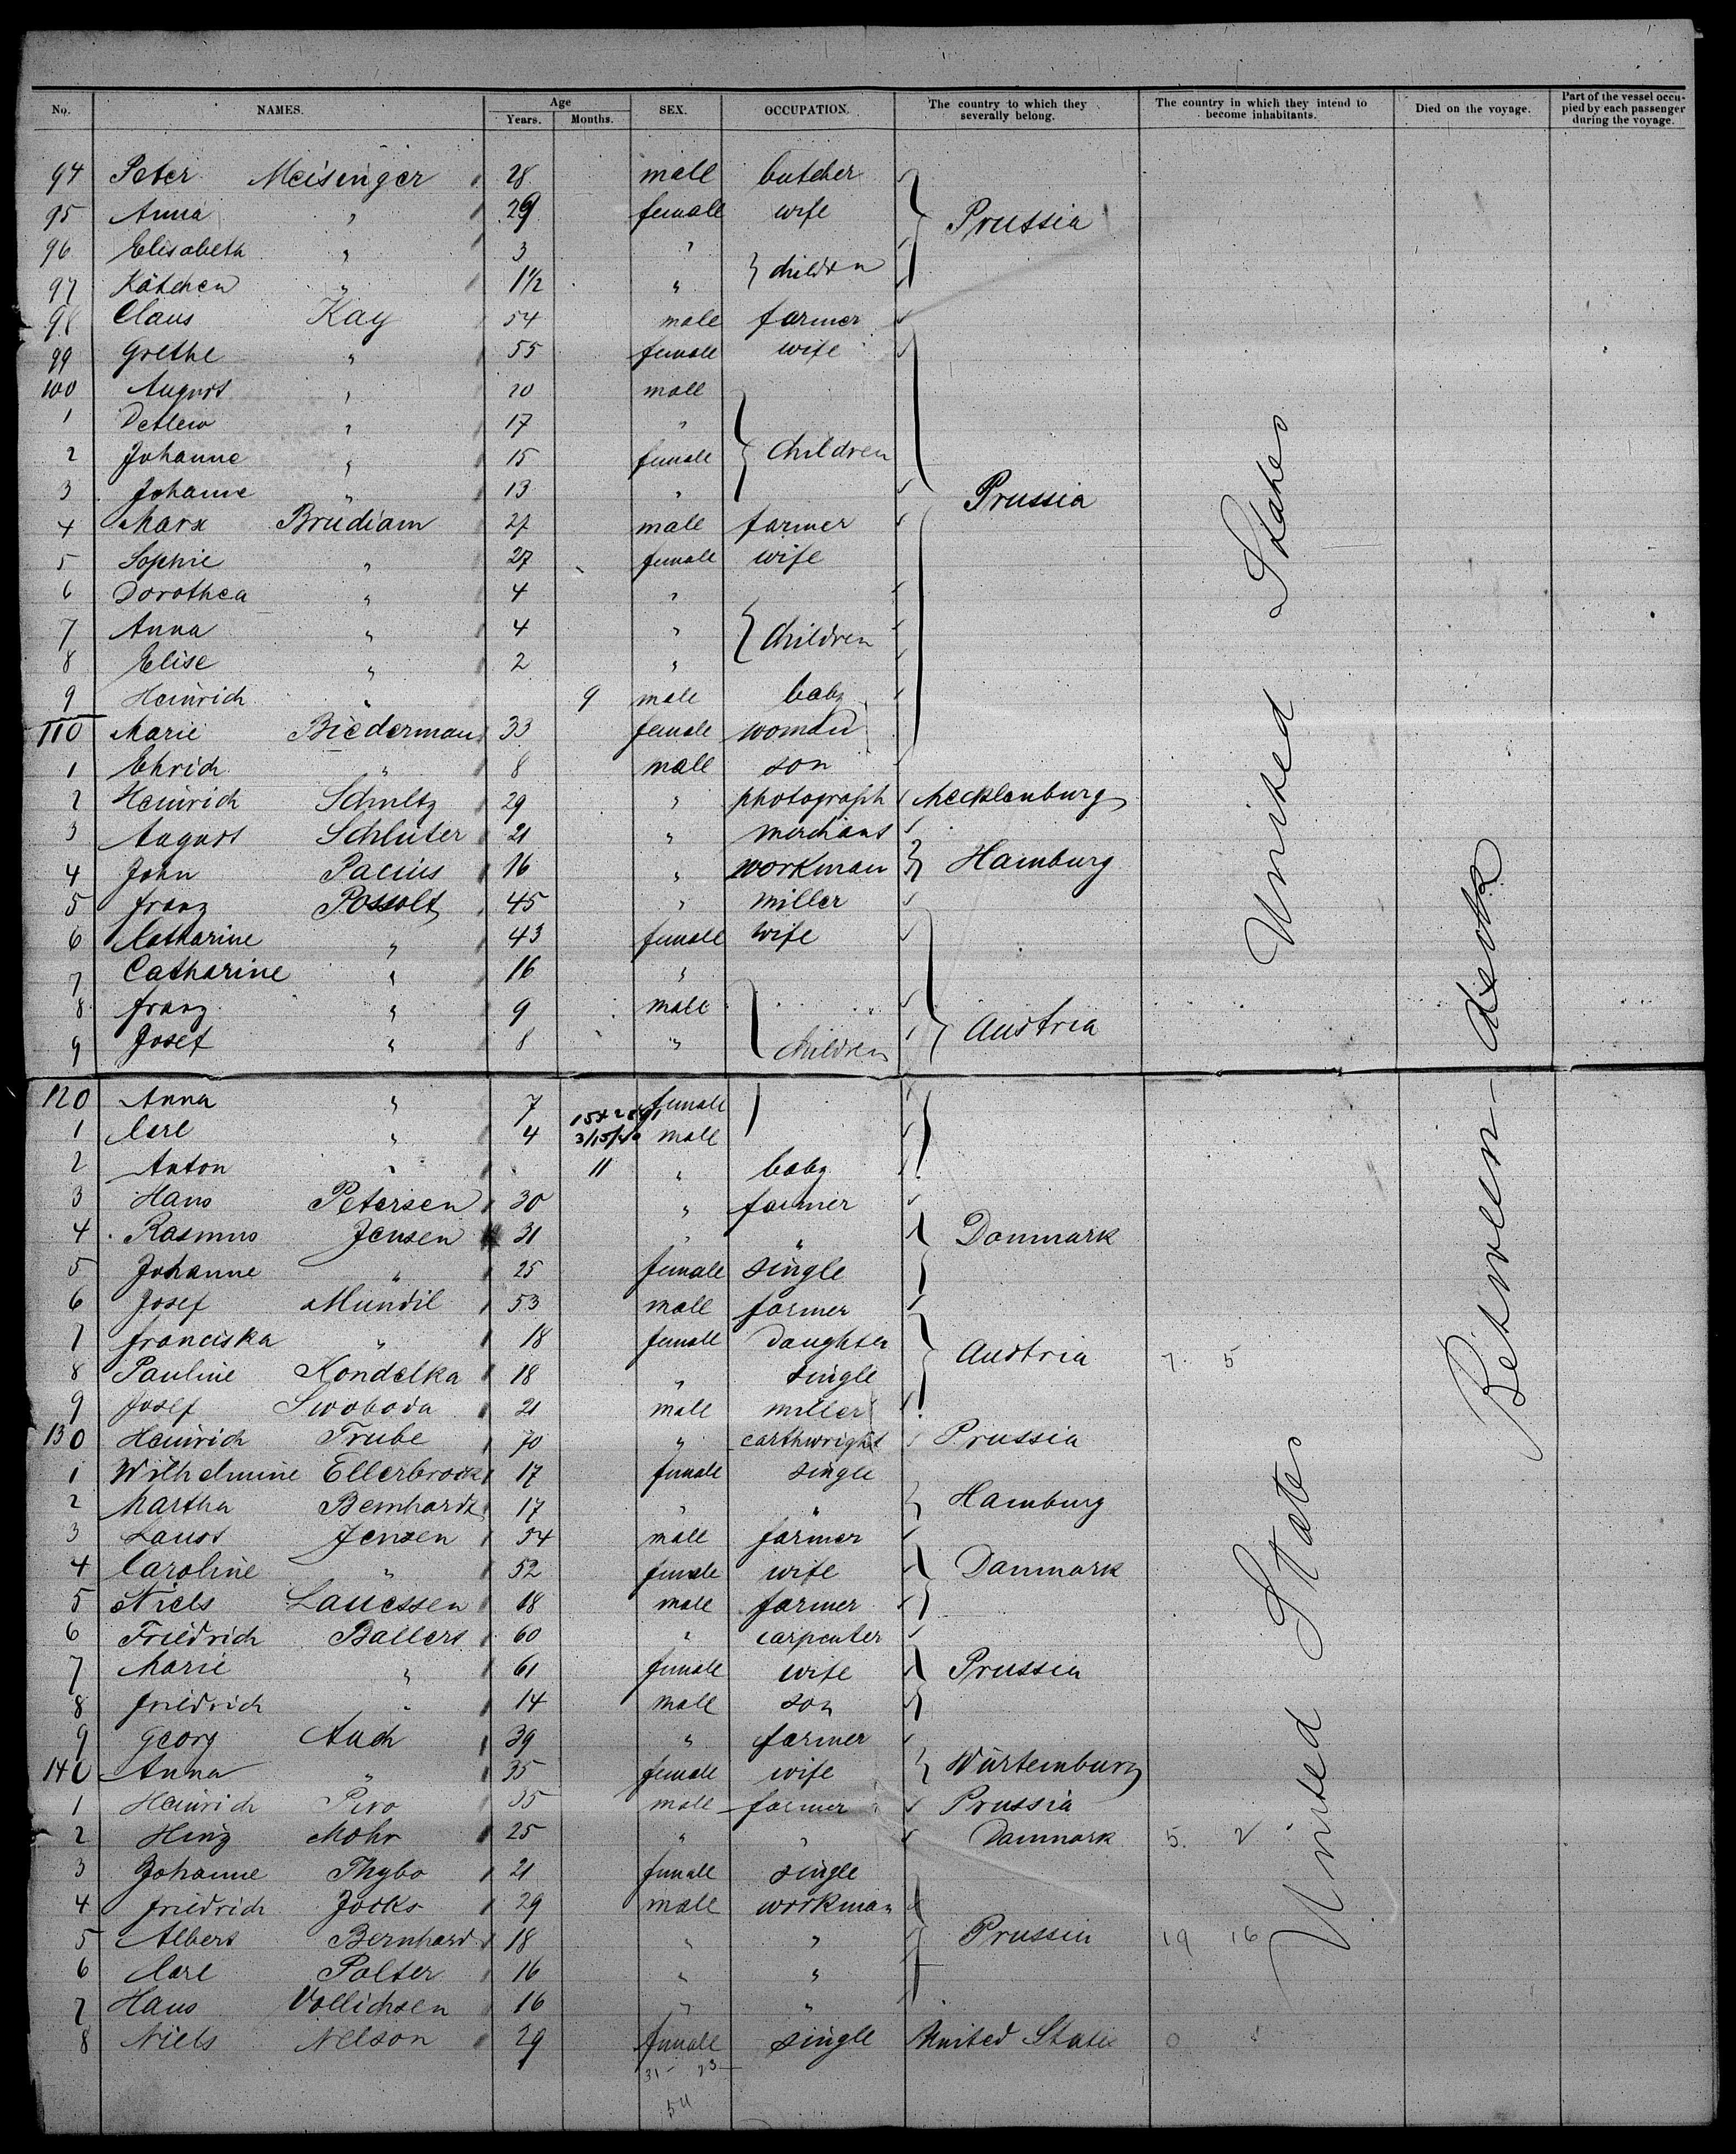 No. NAMES. Age Years. Months. SEX. OCCUPATION. The country to which they severally belong. The country in which they intend to become inhabitants. Died on the voyage. Part of the vessel occupied by each passenger during the voyage.
94 Peter Meisinger 28 male butcher
95 Anna " 29 female wife Prussia
96 Elisabeth " 3 "
97 Kätchen " 1½ " children
98 Claus Kay 54 male farmer
99 Grethe " 55 female wife
100 August " 20 male
1 Detlew " 17 "
2 Johanne " 15 female children
3 Johanne " 13 " Prussia
4 Marx Brudiam 27 male farmer
5 Sophie " 27 female wife
6 Dorothea " 4 "
7 Anna " 4 " children
8 Elise " 2 "
9 Heinrich " 9 male baby
110 Marie Biederman 33 female woman
1 Ehrich " 8 male son
2 Heinrich Schultz 29 " photograph Mecklenburg
3 August Schluter 21 " merchant
4 John Pacius 16 " workman Hamburg
5 Franz Possolt 45 " miller
6 Catharine " 43 female wife
7 Catharine " 16 "
8 Franz " 9 male
9 Josef " 8 " children Austria
United States
120 Anna " 7 female
1 Carl " 4 3/15/40 male
2 Anton " 11 " baby
3 Hans Petersen 30 " farmer
4 Rasmus Jensen 31 " " Danmark
5 Johanne " 25 female single
6 Josef Mundil 53 male farmer
7 Franciska " 18 female daughter
8 Pauline Kondelka 18 " single Austria 7. 5
9 Josef Swoboda 21 male miller
130 Heinrich Trube 70 " carthwright Prussia
1 Wilhelmine Ellerbrock 17 female single
2 Martha Bernhardt 17 " " Hamburg
3 Laust Jensen 54 male farmer
4 Caroline " 52 female wife Danmark
5 Niels Lauessen 18 male farmer
6 Friedrich Ballers 60 " carpenter
7 Marie " 61 female wife Prussia
8 Friedrich " 14 male son
9 Georg Auch 39 " farmer
140 Anna " 35 female wife Würtemburg
1 Heinrich Piro 35 male farmer Prussia
2 Hinz Mohr 25 " " Danmark 5. 2
3 Johanne Thybo 21 female single
4 Friedrich Jocks 29 male workman
5 Albert Bernhard 18 " " Prussia 19 16
6 Carl Polter 16 " "
7 Hans Vollichsen 16 " "
8 Niels Nelson 29 female single United States 0
31 - 23
54
United States
Between-deck